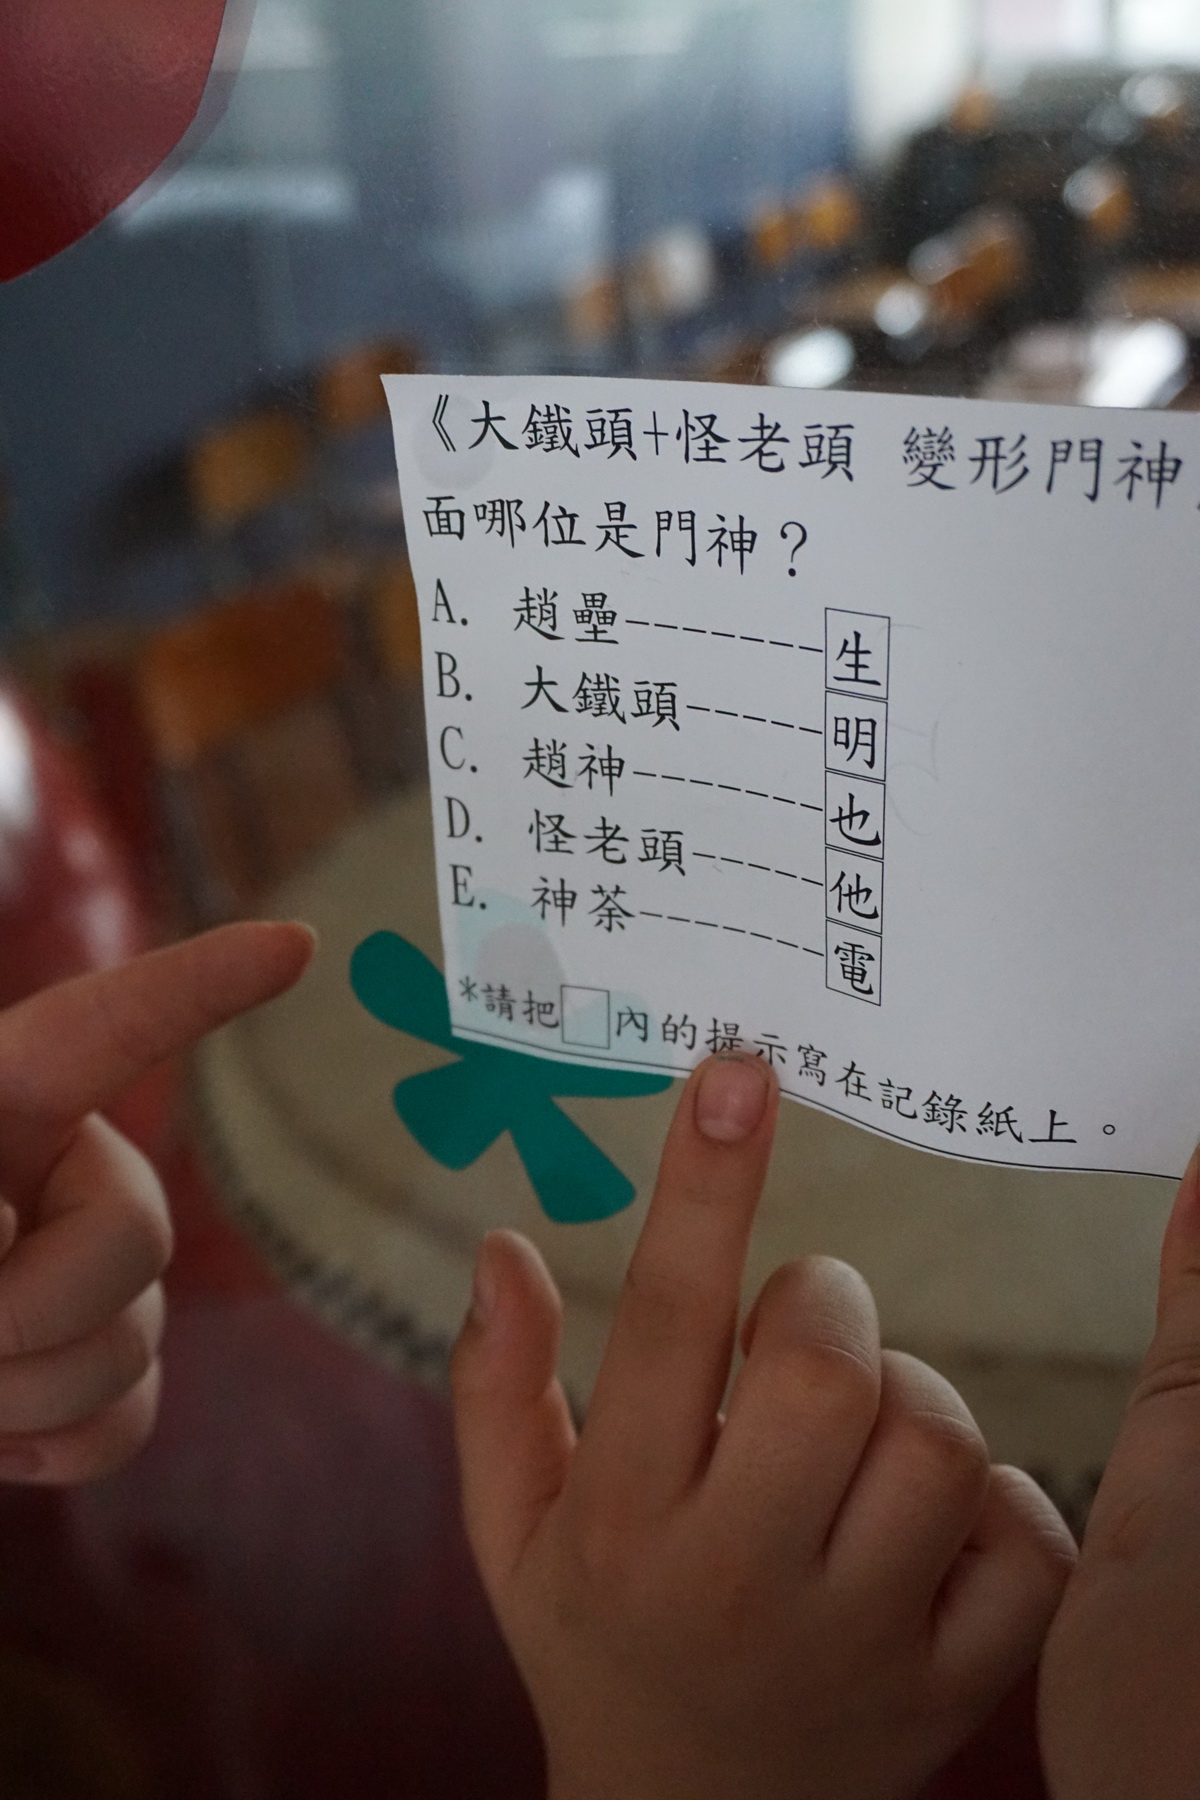 《大鐵頭+怪老頭 變形門神
面哪位是門神？
A. 趙壘------生
B. 大鐵頭-----明
C. 趙神------也
D. 怪老頭-----他
E. 神荼------電
*請把□內的提示寫在記錄紙上。